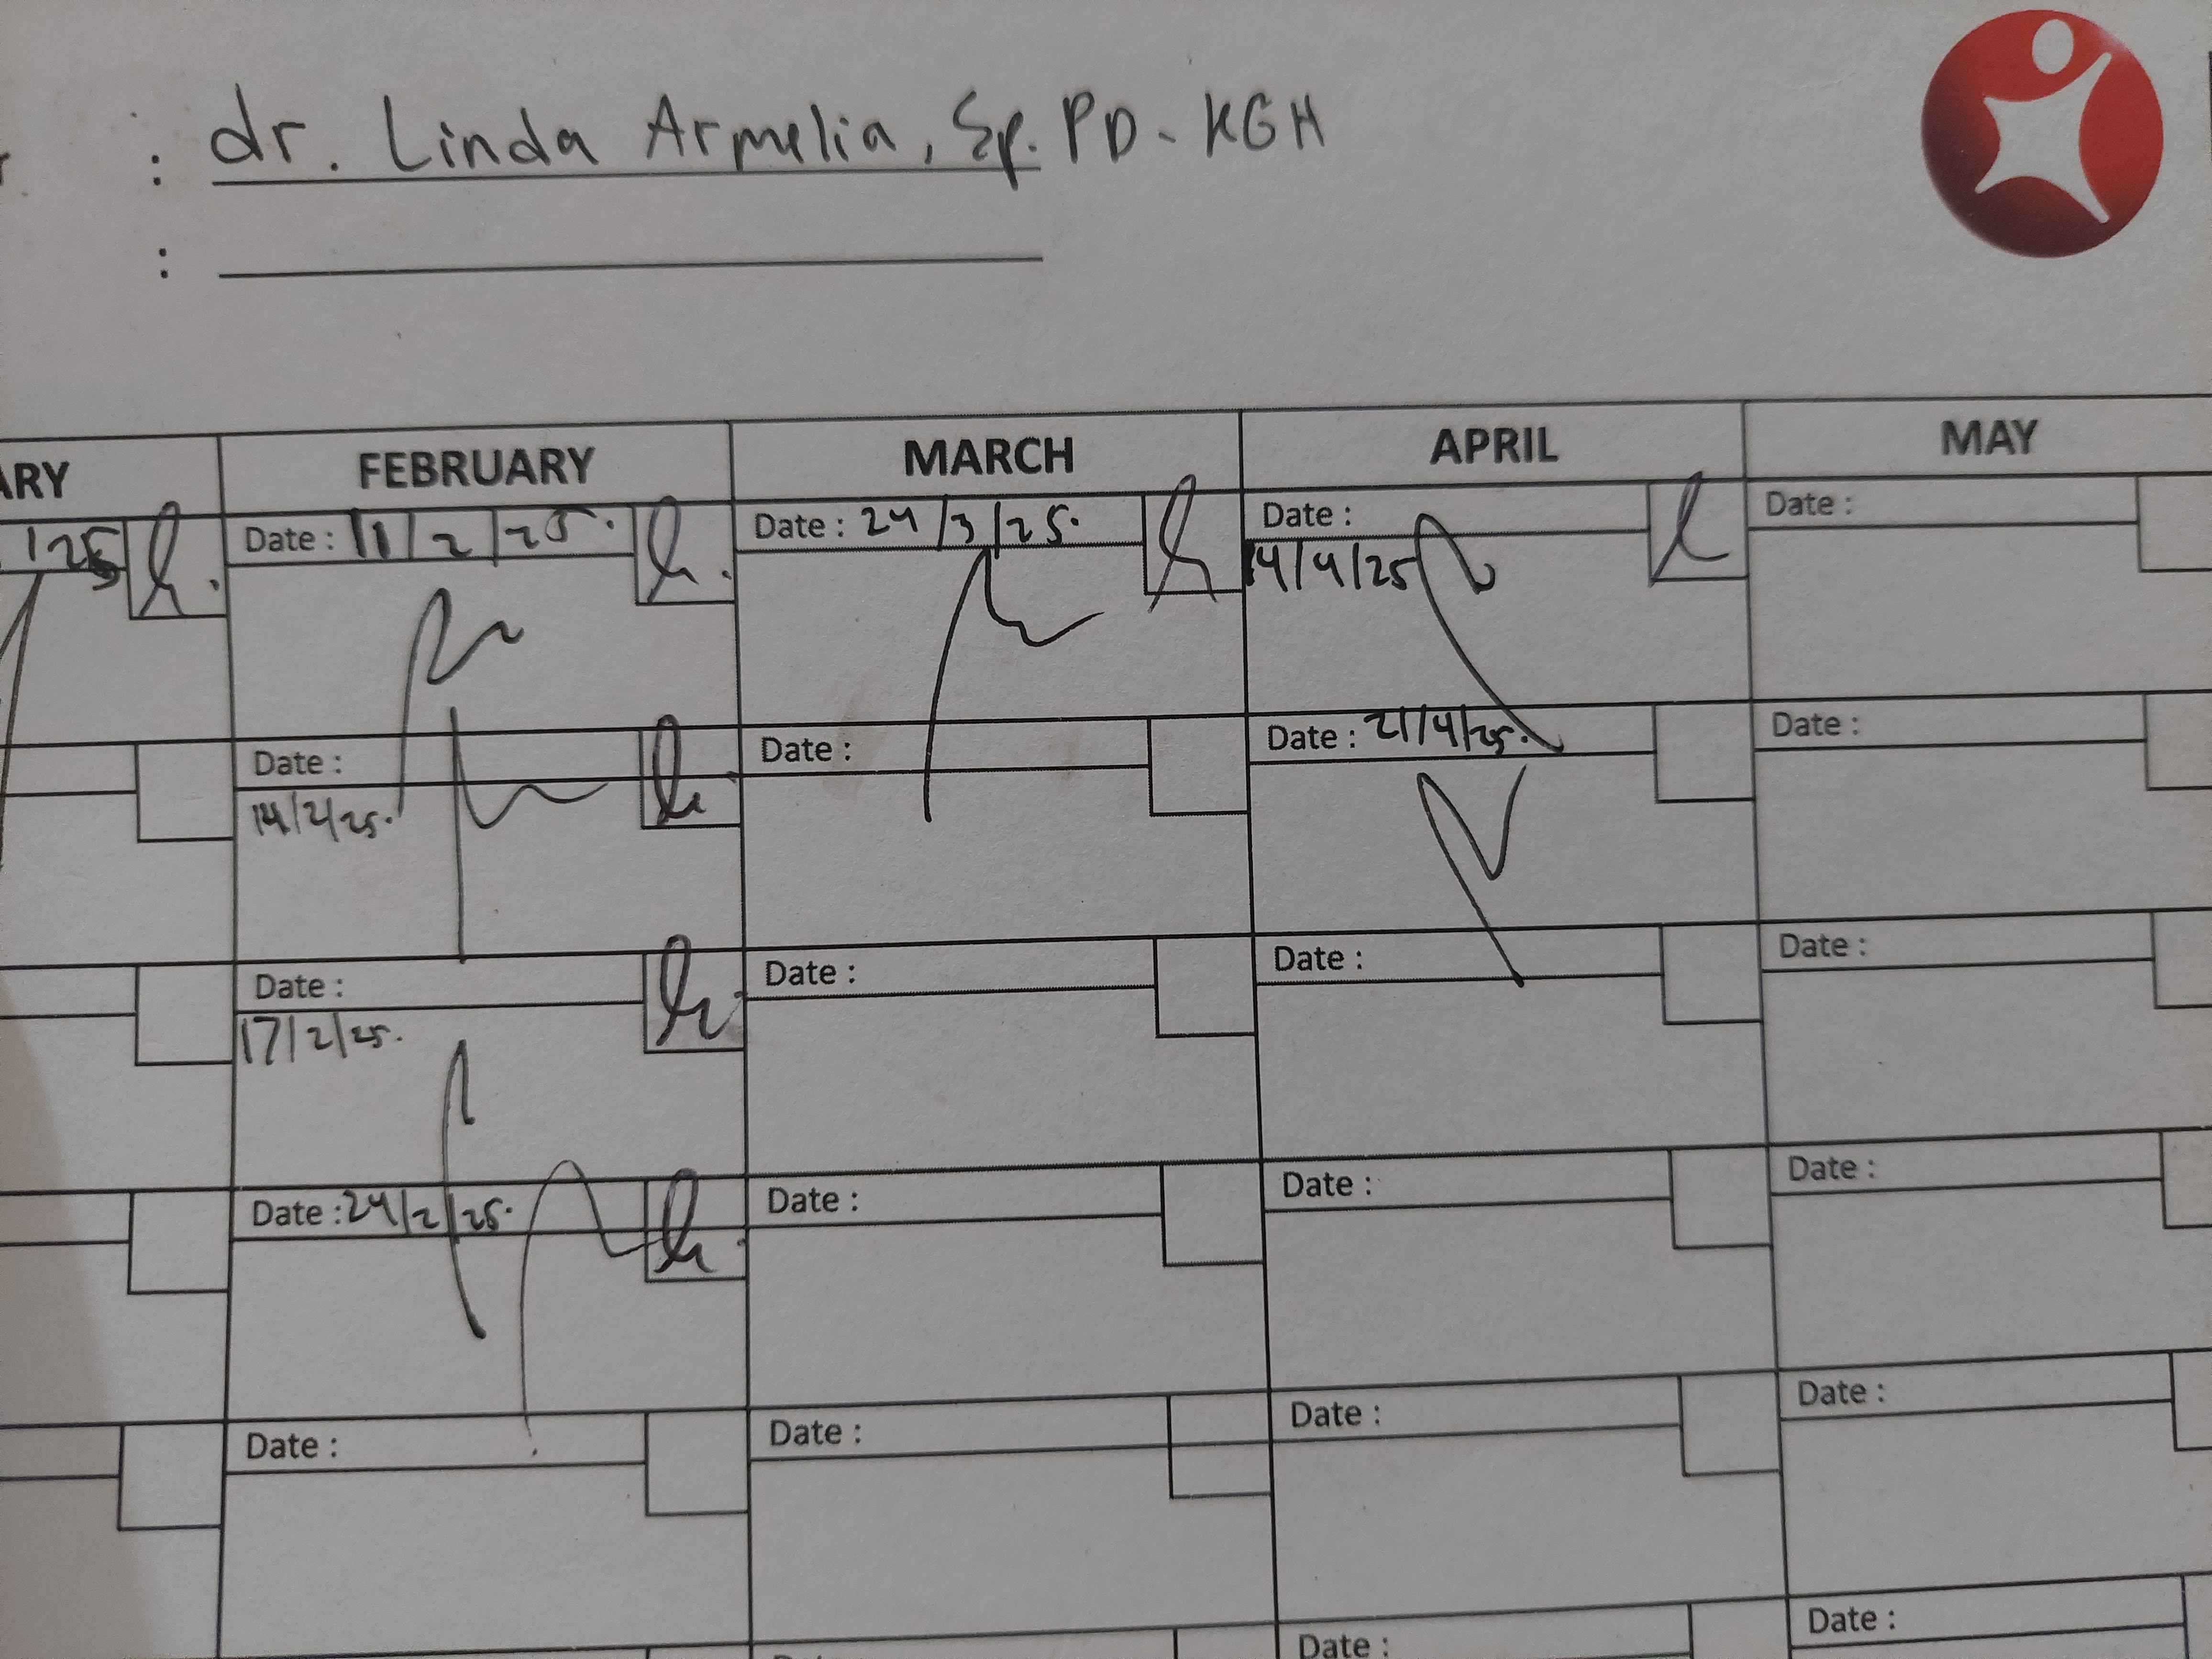 : dr. Linda Armelia, Sp. PD - KGH
:
ARY FEBRUARY MARCH APRIL MAY
125 Date : 11/2/25. Date : 24/3/25. Date : Date :
14/4/25
Date : Date : Date : 21/4/25. Date :
14/2/25.
Date : Date : Date : Date :
17/2/25.
Date : 24/2/25. Date : Date : Date :
Date : Date : Date : Date :
Date : Date :